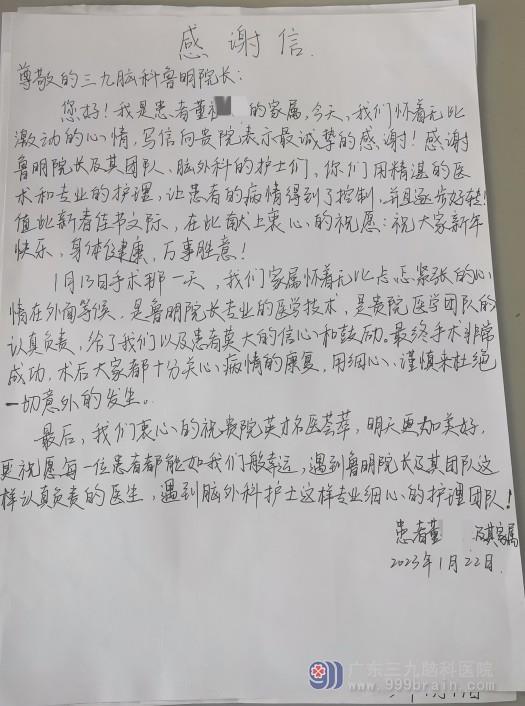 感谢信.
尊敬的三九脑科鲁明院长:
您好!我是患者董 的家属,今天,我们怀着无比
激动的心情,写信向贵院表示最诚挚的感谢!感谢
鲁明院长及其团队、脑外科的护士们,你们用精湛的医
术和专业的护理,让患者的病情得到了控制,并且逐步好转!
值此新春佳节之际,在此献上衷心的祝愿:祝大家新年
快乐,身体健康,万事胜意!
1月13日手术那一天,我们家属怀着无比忐忑紧张的心
情在外面等候,是鲁明院长专业的医学技术,是贵院医学团队的
认真负责,给了我们以及患者莫大的信心和鼓励。最终手术非常
成功,术后大家都十分关心病情的康复,用细心、谨慎来杜绝
一切意外的发生。
最后,我们衷心的祝贵院英才名医荟萃,明天更加美好.
更祝愿每一位患者都能如我们般幸运,遇到鲁明院长及其团队这
样认真负责的医生,遇到脑外科护士这样专业细心的护理团队!
患者董 及其家属
2023年1月22日.
广东三九脑科医院
www.999brain.com